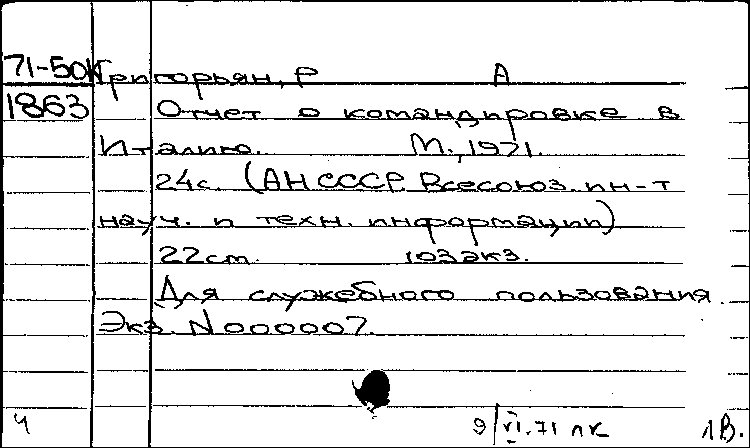 71-50К Григорьян, Р А
1863 Отчет о командировке в
Италию. М., 1971.
24с. (АН СССР. Всесоюз. ин-т
науч. и техн. информации)
22см. 103экз.
Для служебного пользования.
Экз. N 000007.
Ч 9/VI.71 лк 1В.